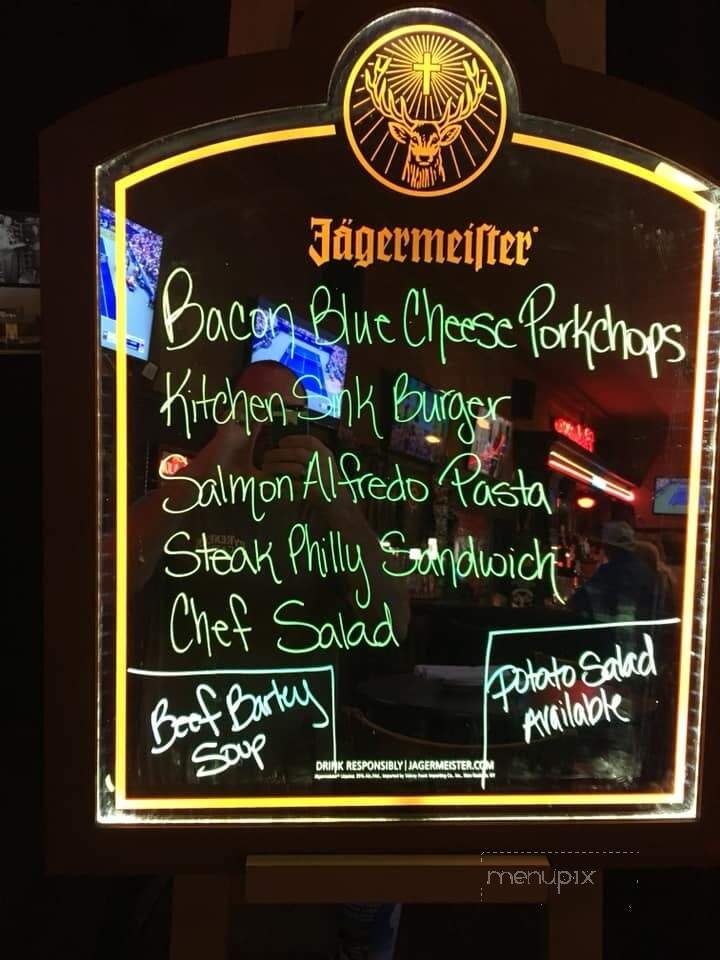 Jägermeister
Bacon Blue Cheese Porkchops
Kitchen Sink Burger
Salmon Alfredo Pasta
Steak Philly Sandwich
Chef Salad
Beef Barley
Soup
Potato Salad
Available
DRINK RESPONSIBLY | JAGERMEISTER.COM
menupix